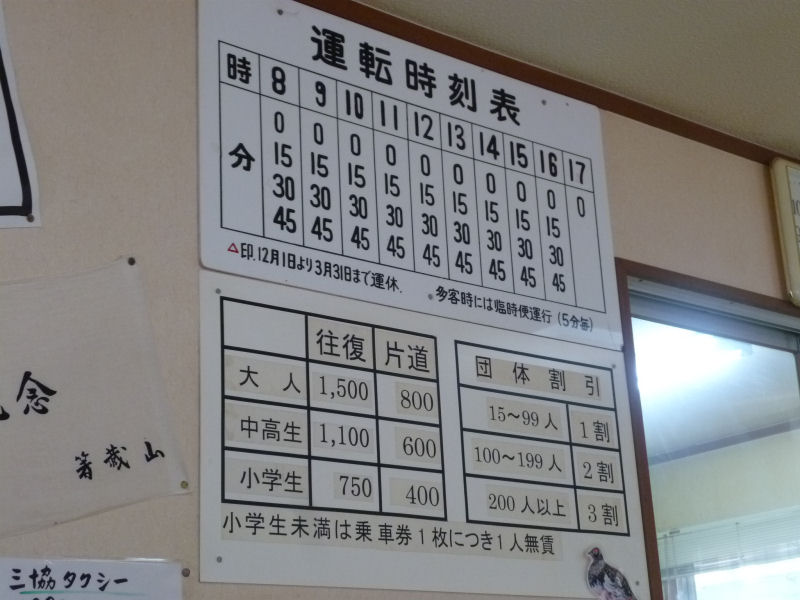 運転時刻表
時 8 9 10 11 12 13 14 15 16 17
分 0 0 0 0 0 0 0 0 0 0
15 15 15 15 15 15 15 15 15
30 30 30 30 30 30 30 30 30
45 45 45 45 45 45 45 45 45
△印.12月1日より3月31日まで運休.
多客時には臨時便運行(5分毎)
往復 片道
大人 1,500 800
中高生 1,100 600
小学生 750 400
小学生未満は乗車券1枚につき1人無賃
団体割引
15〜99人 1割
100〜199人 2割
200人以上 3割
念
箸蔵山
三協タクシー